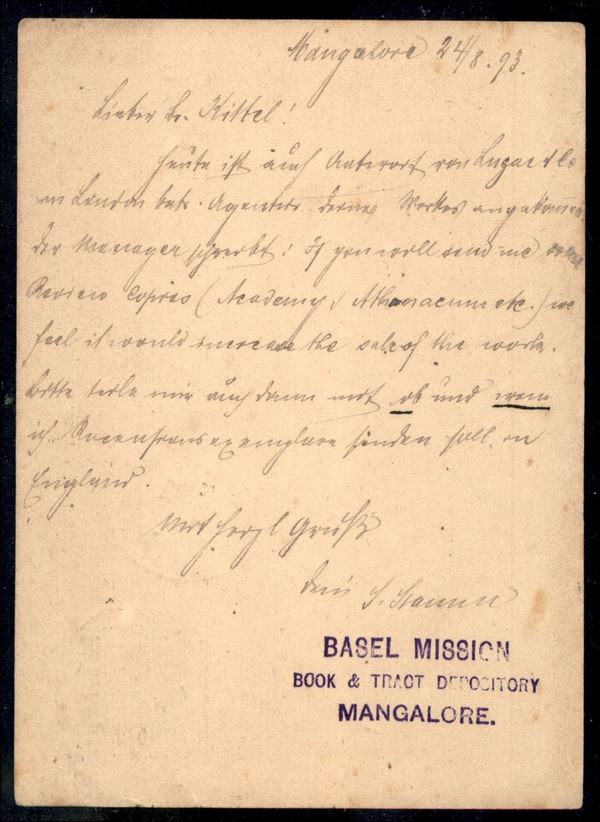 Mangalore 24/8.93.
Lieber Dr. Kittel!
Heute ist auch Antwort von Luzac & Co
in London betr. Agentur deines Werkes angekommen
der Manager schreibt: if you will send me some
Review Copies (Academy, Athenaeum etc.) we
feel it would increase the sale of the work.
Bitte teile mir auch dann mit ob und wem
ich Recensionsexemplare senden soll in
England.
Mit herzl Gruß
Dein
BASEL MISSION
BOOK & TRACT DEPOSITORY
MANGALORE.